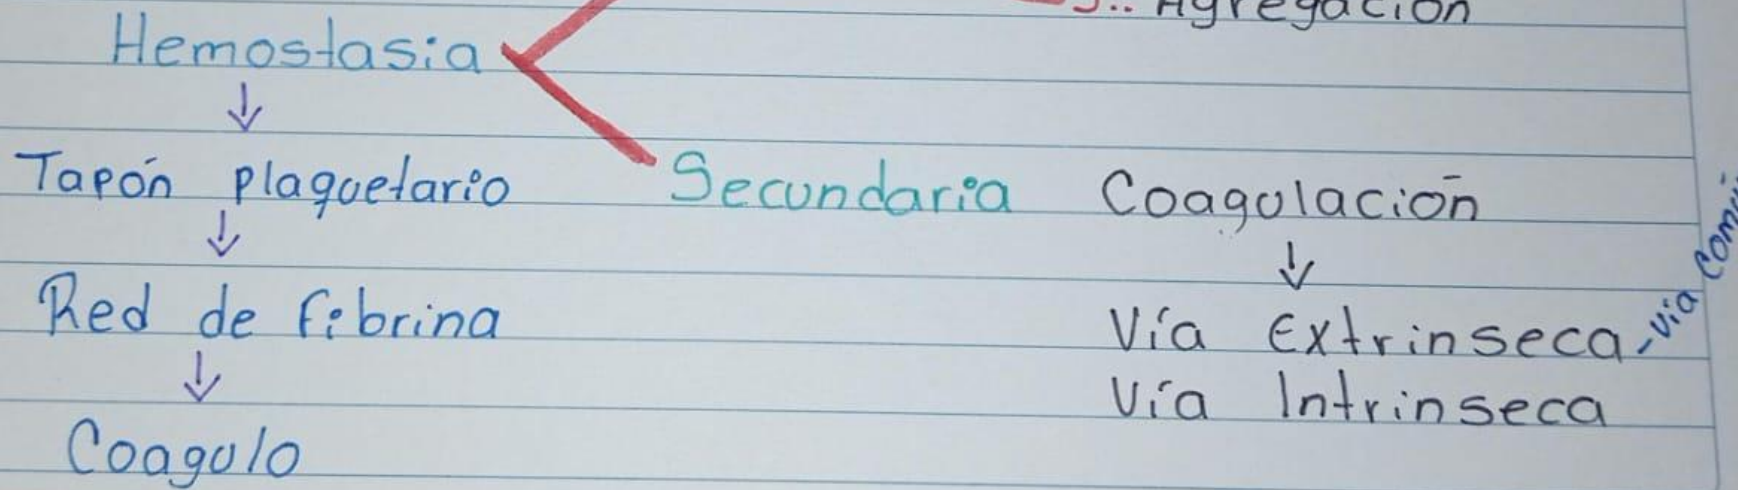 3.. Agregación
Hemostasia
↓
Tapón plaquetario
↓
Red de fibrina
↓
Coagulo
Secundaria Coagulación
↓
Vía Extrinseca, via
Vía Intrinseca